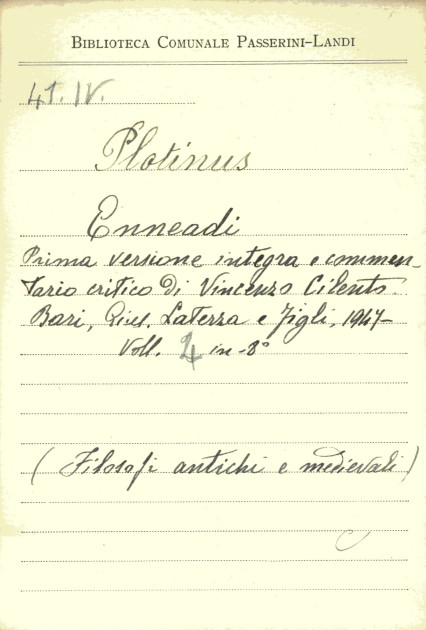 BIBLIOTECA COMUNALE PASSERINI-LANDI
41. IV.
Plotinus
Enneadi
Prima versione integra e commen-
tario critico di Vincenzo Cilento.
Bari, Gius. Laterza e Figli, 1947-
Voll. in-8°
(Filosofi antichi e medievali)